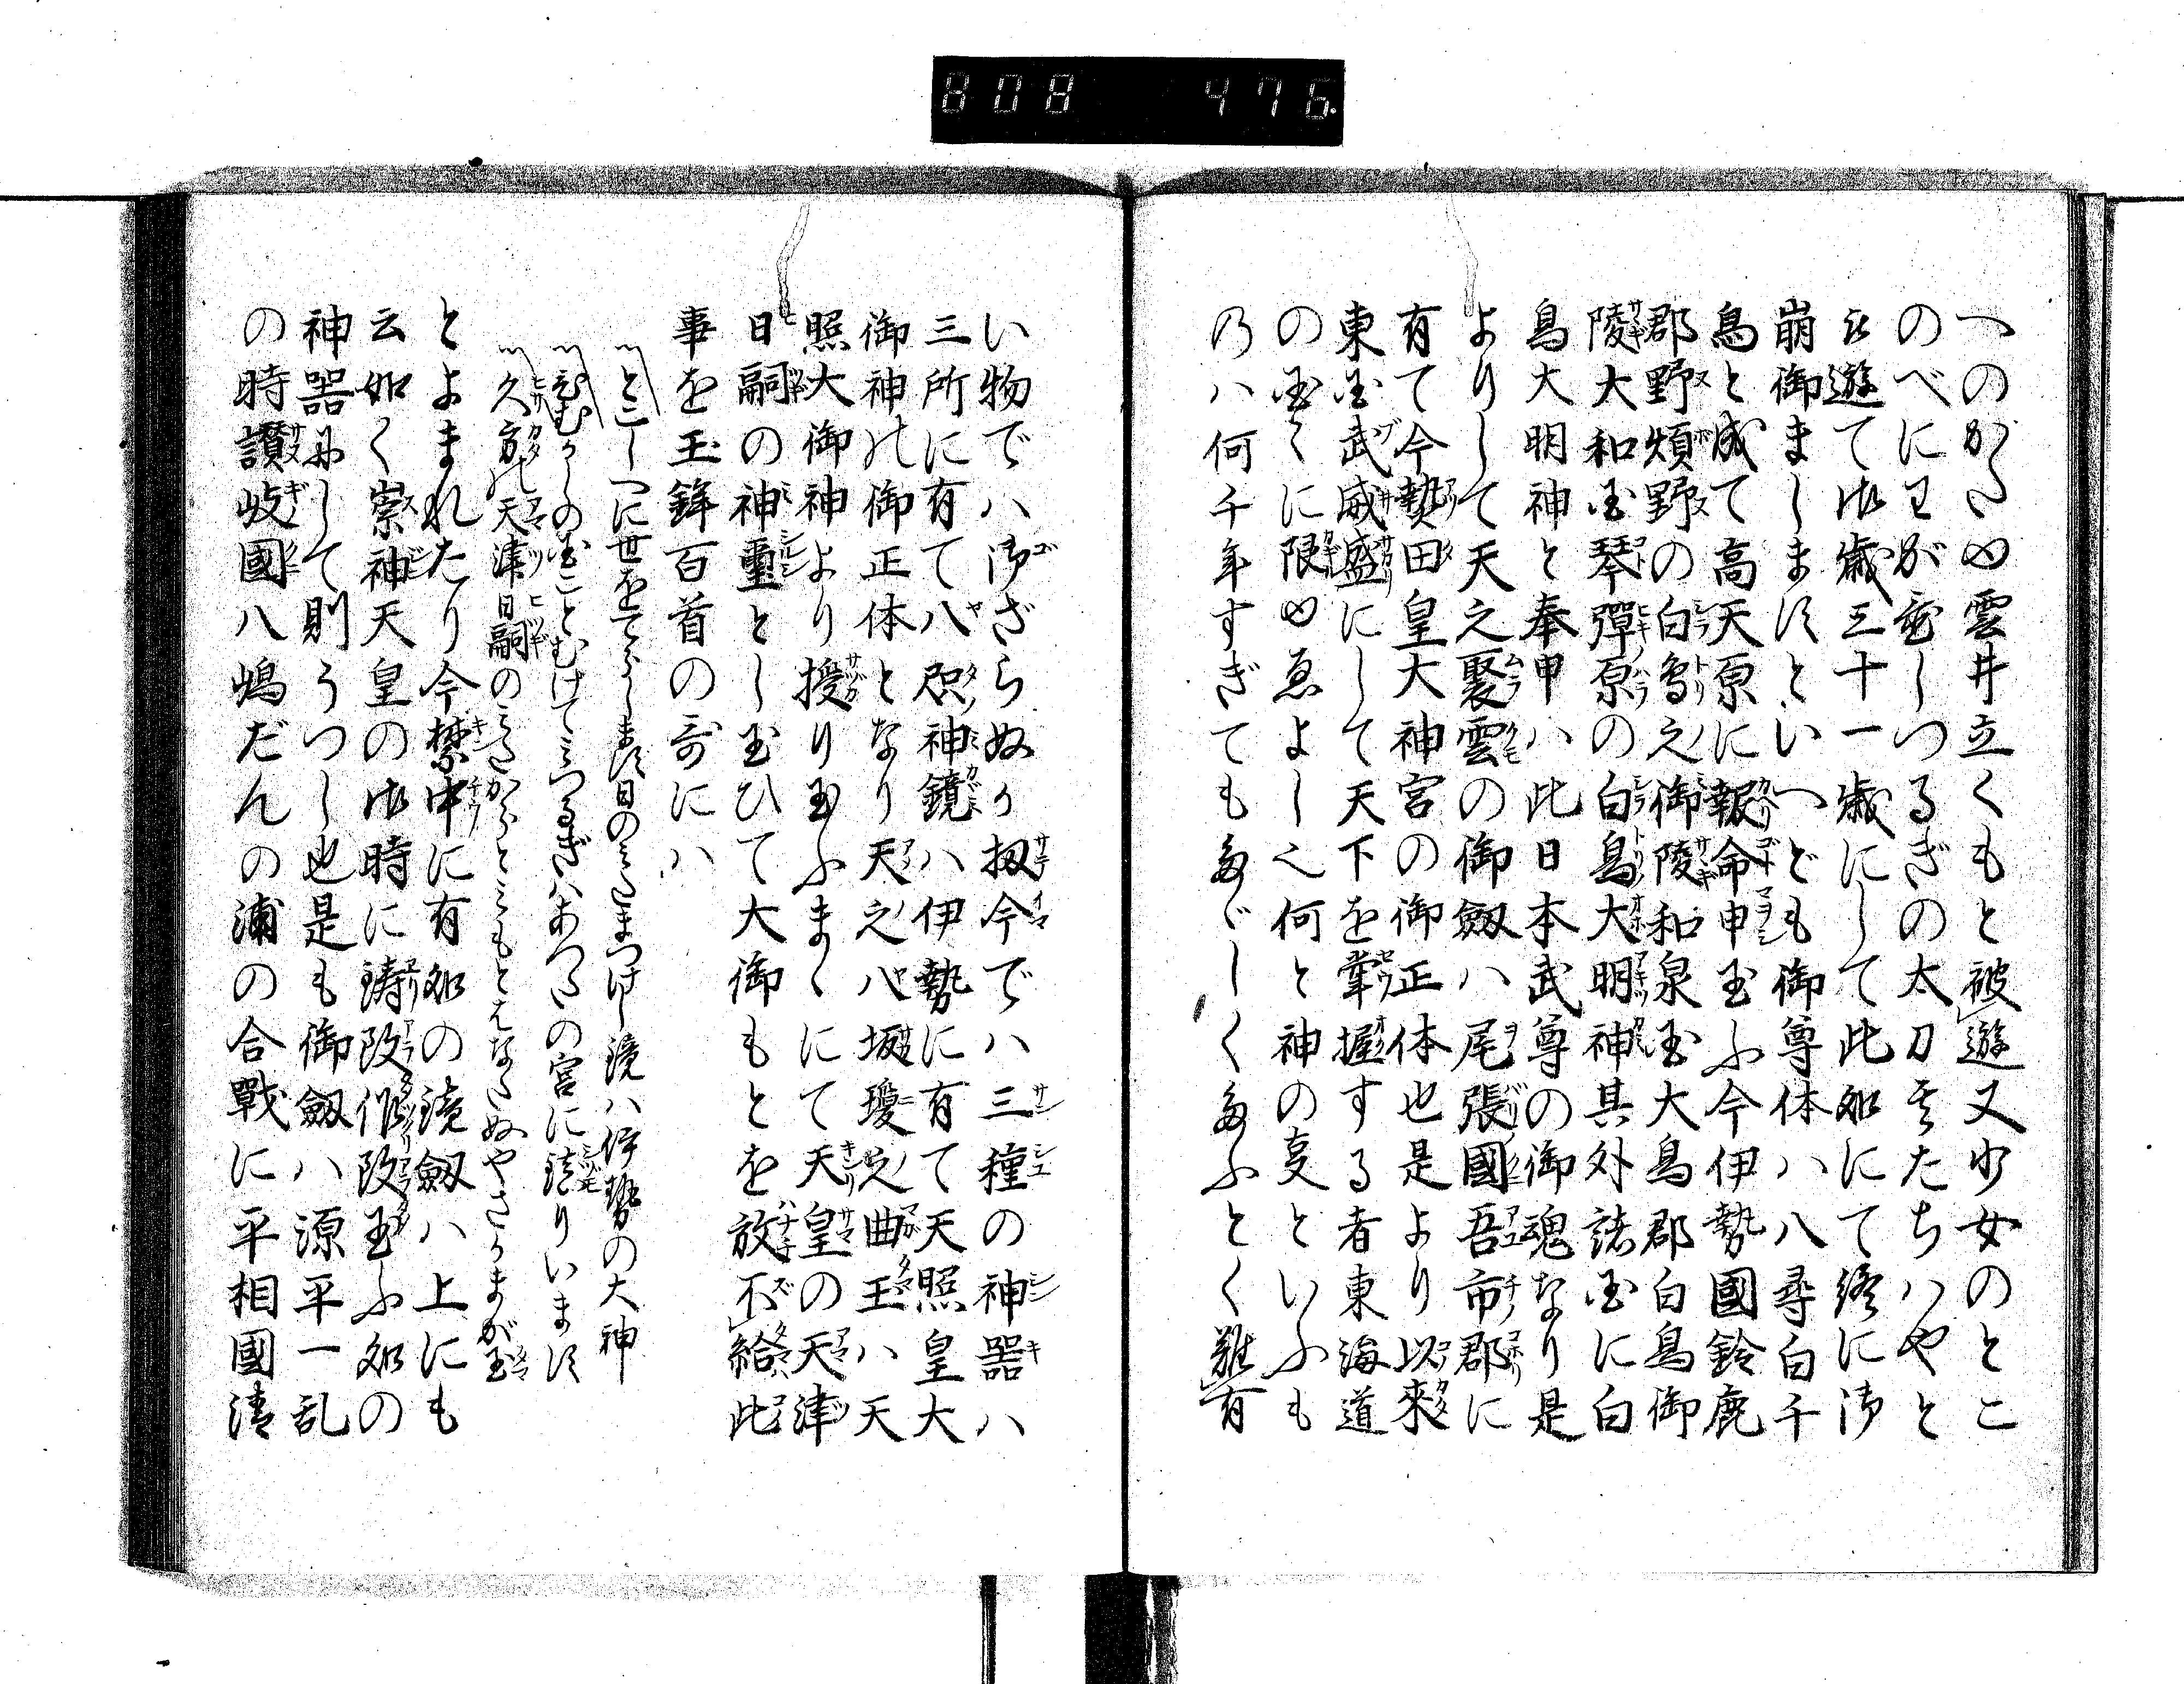 808 476.
へのかたゆ雲井立くもと被遊又少女のとこ
のべにわが㐂しつるぎの太刀其たちハやと
被遊て御歳三十一歳にして此処にて終に御
崩御ましますといへども御尊体ハ八尋白千
鳥と成て高天原に報命申玉ふ今伊勢國鈴鹿
郡野煩野の白鳥之御陵和泉国大鳥郡白鳥御
陵大和国琴彈原の白鳥大明神其外諸国に白
鳥大明神と奉申ハ此日本武尊の御魂なり是
よりして天之聚雲の御劔ハ尾張國吾市郡に
有て今㷱田皇大神宮の御正体也是より以來
東国武威盛にして天下を掌握する者東海道
の国々に限ゆゑよし之何と神の㕝といふも
乃ハ何千年すぎてもあぶしくあふとく難有
い物でハ御ざらぬか扨今でハ三種の神器ハ
三所に有て八咫神鏡ハ伊勢に有て天照皇大
御神の御正体となり天之八坂瓊之曲王ハ天
照大御神より授り玉ふまゝにて天皇の天津
日嗣の神璽とし玉ひて大御もとを放不給此
事を玉鉾百首の哥にハ
とこしへに世をてらします日のみたまつけし鏡ハ伊勢の大神
むかしの国ことむけてみつるぎハあつたの宮に鎮りいます
久方の天津日嗣のみたからとみもとはなたぬやさかまが玉
とよまれたり今禁中に有処の鏡劔ハ上にも
云如く崇神天皇の御時に鋳改作改玉ふ処の
神器にして則うつし也是も御劔ハ源平一乱
の時讃岐國八嶋だんの浦の合戰に平相國清